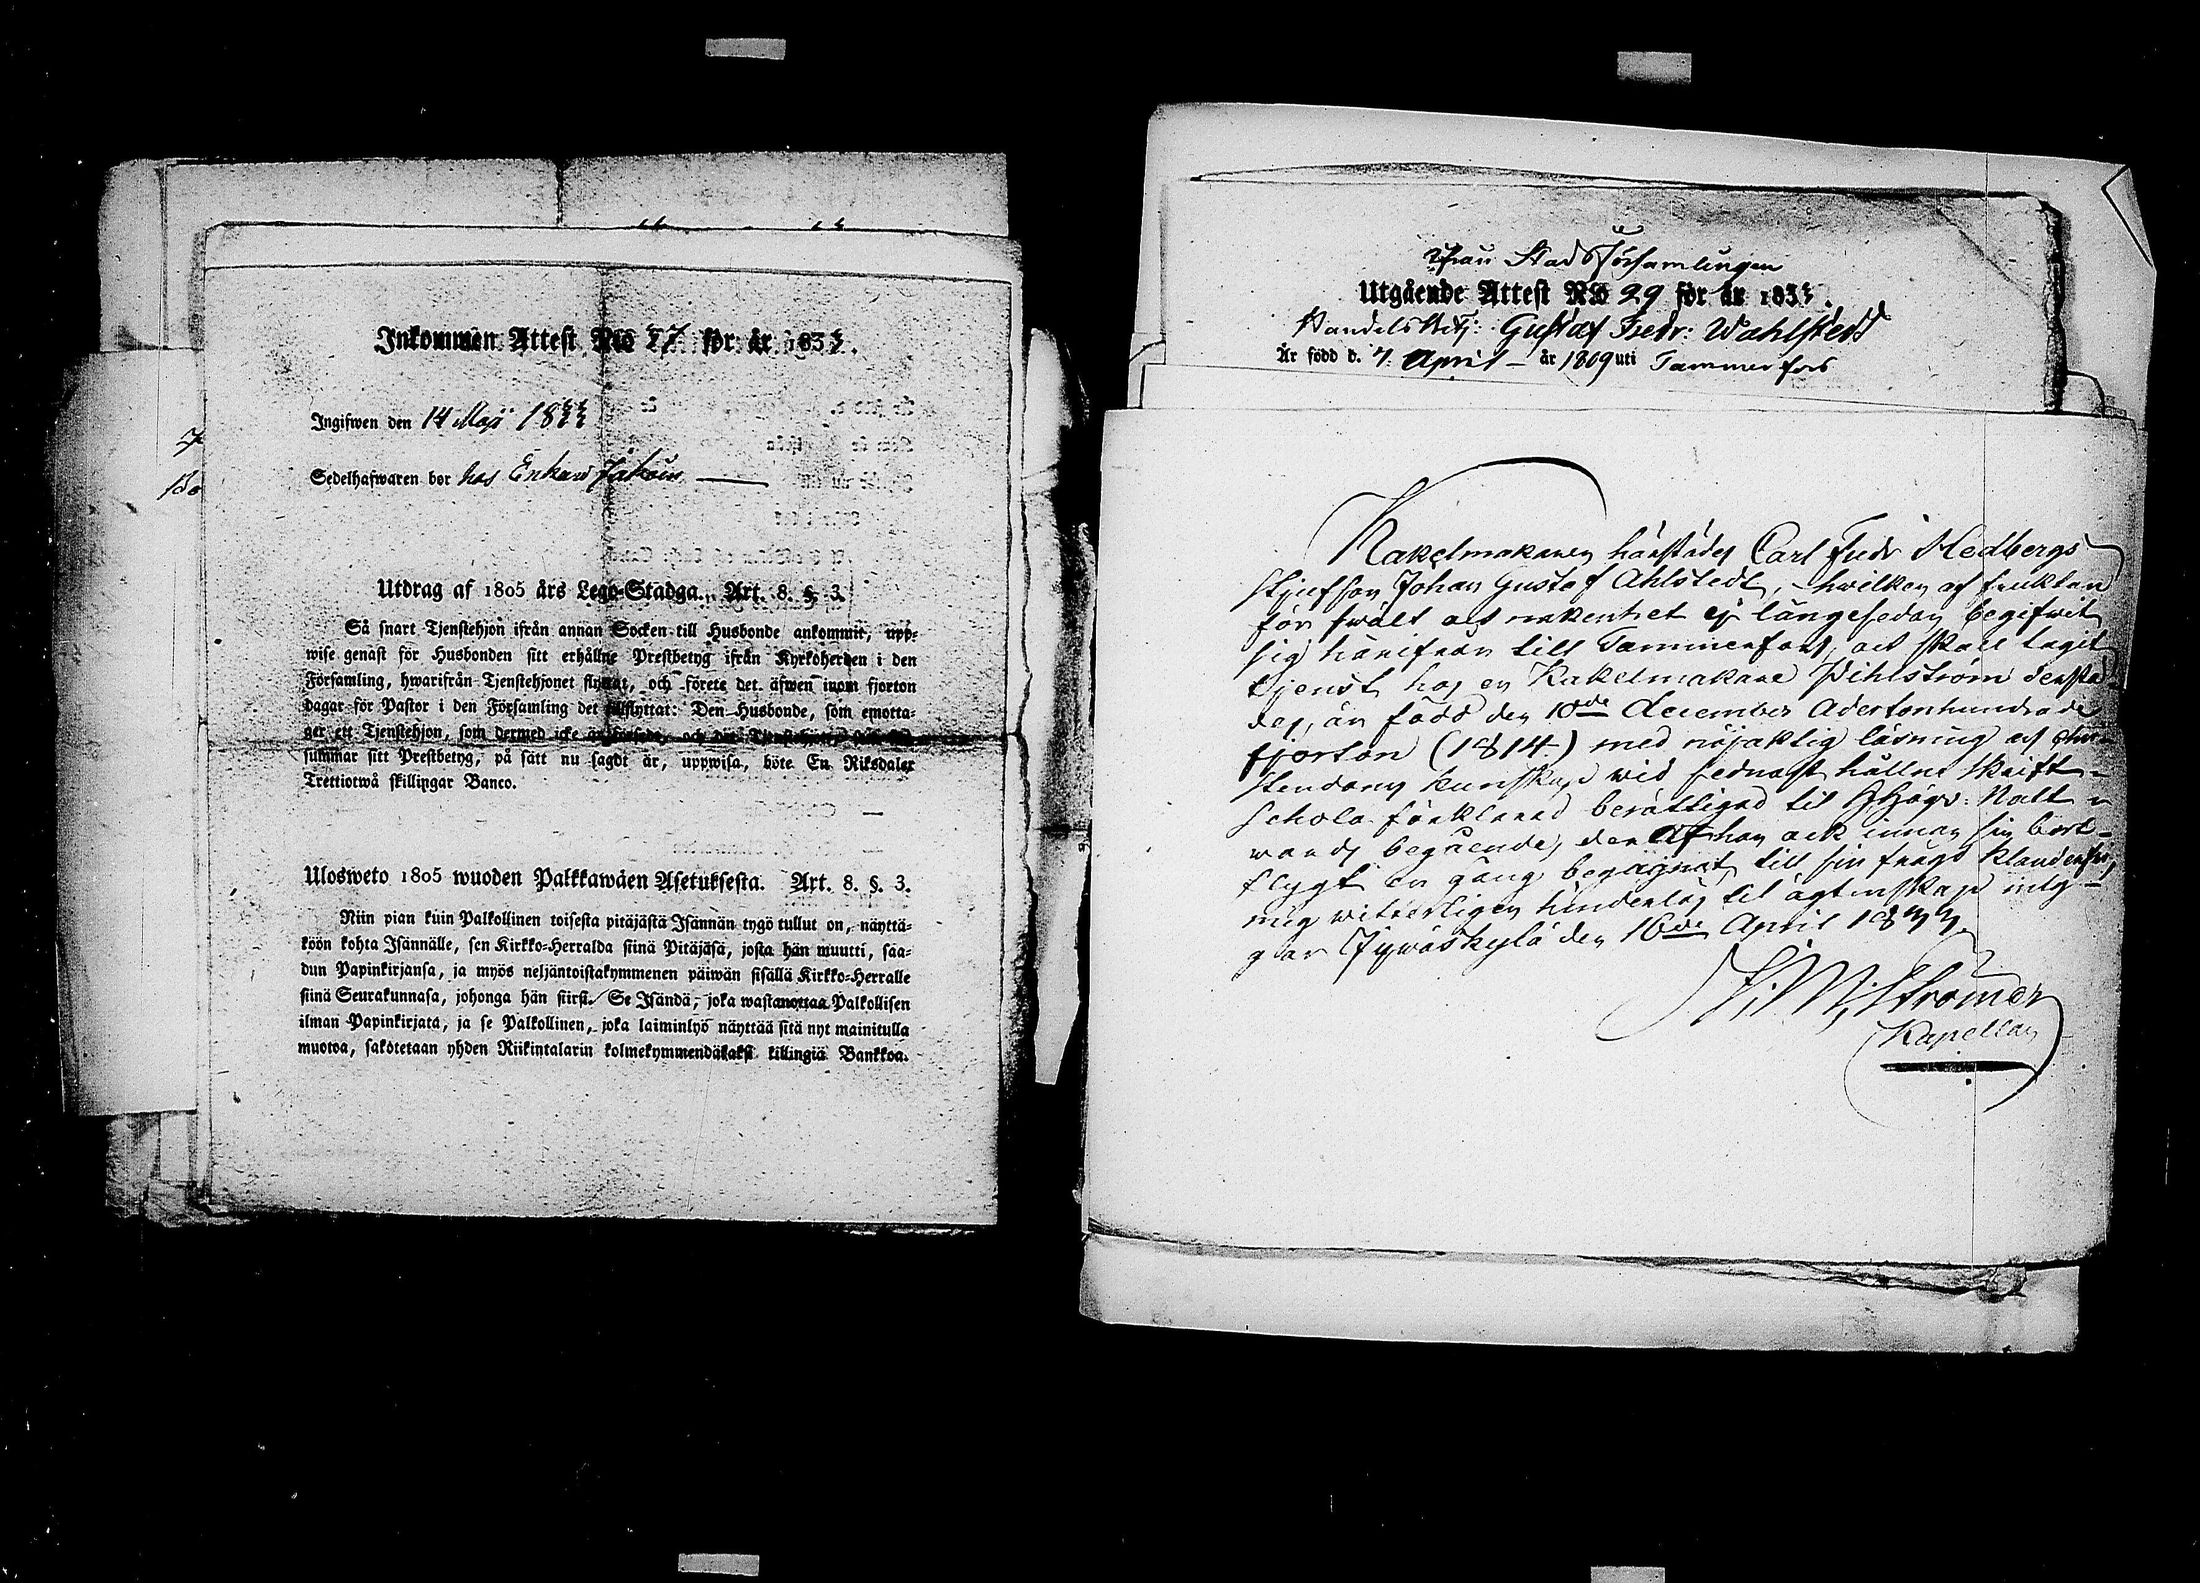 Inkommen Attest No 77 för år 1833.
Ingifwen den 14 Maji 1833
Sedelhafwaren bor hos Enkan
Utdrag af 1805 års Lego-Stadga. Art. 8. §. 3.
Så snart Tjenstehjon ifrån annan Socken till Husbonde ankommit, upp-
wise genast för Husbonden sitt erhållne Prestbetyg ifrån Kyrkoherden i den
Församling, hwarifrån Tjenstehjonet flyttat, och förete det äfwen inom fjorton
dagar för Pastor i den Församling det tillflyttat: Den Husbonde, som emotta-
ger ett Tjenstehjon, som dermed icke är försedt, och det Tjenstehjon, som för-
summar sitt Prestbetyg, på sätt nu sagdt är, uppwisa, böte En Riksdaler
Trettiotwå skillingar Banco.
Ulosweto 1805 wuoden Palkkawäen Asetuksesta. Art. 8. §. 3.
Niin pian kuin Palkollinen toisesta pitäjästä Isännän tygö tullut on, näyttä-
köön kohta Isännälle, sen Kirkko-Herralda siinä Pitäjäsä, josta hän muutti, saa-
dun Papinkirjansa, ja myös neljäntoistakymmenen päiwän sisällä Kirkko-Herralle
siinä Seurakunnasa, johonga hän siirsi. Se Isändä, joka wastanottaa Palkollisen
ilman Papinkirjatа, ja se Palkollinen, joka laiminlyö näyttää sitä nyt mainitulla
muotoa, sakotetaan yhden Riikintalarin kolmekymmendäkaksi killingiä Bankkoa.
ifrån Stads Församlingen
Utgående Attest No 29 för år 1833.
Handelsbetj: Gustaf Fredr: Wahlstedt
Är född d. 7. April — år 1809 uti Tammerfors
Kakelmakaren härstädes Carl Fredr Hedbergs
Stjufson Johan Gustaf Ahlstedt, hwilken af fruktan
för swält och nakenhet ej längesedan begifwit
sig härifrån till Tammerfors, och skall tagit
tjenst hos en Kakelmakare Pihlström derstä-
des, är född den 10de December Adertonhundrade
fjorton (1814) med nöjaktig läsning och chri-
stendoms kunskap wid sednast hållne Skrift-
schola förklarad berättigad til HHögv: Natt-
wards begående, den han ock innan sin bort-
flygt en gång begagnat, till sin frägd klanderfri,
mig witterligen hinderlös til ägtenskap inty-
gar Jywäskylä den 16de April 1833.
Strömer
Kapellan